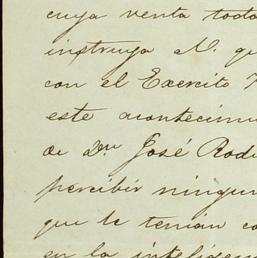 cuya venta toda
instruya al S. qu
con el Exercito
este acontecimi
de Dn José Rodr
percibir ningun
que le tenian co
en la inteligen